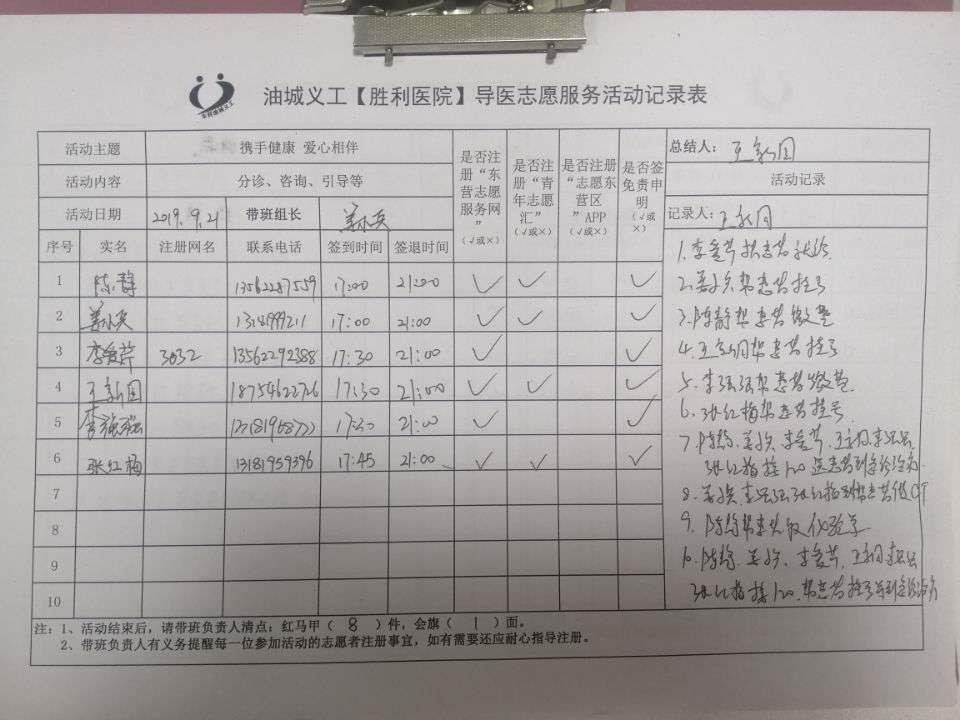 油城义工
油城义工【胜利医院】导医志愿服务活动记录表
活动主题 携手健康 爱心相伴
活动内容 分诊、咨询、引导等
活动日期 2019.9.21 带班组长 姜小英
是否注册“东营志愿服务网” (√或×)
是否注册“青年志愿汇” (√或×)
是否注册“志愿东营区”APP (√或×)
是否签免责申明 (√或×)
总结人: 王新国
活动记录
记录人: 王新国
序号 实名 注册网名 联系电话 签到时间 签退时间
1 陈静 13562287559 17:00 21:00 √ √ √
2 姜小英 1318999211 17:00 21:00 √ √ √
3 李爱芹 3032 13562292388 17:30 21:00 √ √
4 王新国 18754622726 17:30 21:00 √ √ √
5 17:30 21:00 √ √
6 张红梅 13181959396 17:45 21:00 √ √ √
7
8
9
10
1.李爱芹扶患者就诊
2.姜小英帮患者挂号
3.陈静帮患者缴费
4.王新国帮患者挂号
5.帮患者缴费
6.张红梅帮患者挂号
7.陈静、姜小英、李爱芹、王新国
张红梅接120送患者到急诊
8.姜小英 张红梅 患者做CT
9.陈静帮患者取化验单
10.陈静、姜小英、李爱芹、王新国
张红梅接120、帮患者挂号并到急诊
注:1、活动结束后,请带班负责人清点:红马甲( 8 )件,会旗( 1 )面。
2、带班负责人有义务提醒每一位参加活动的志愿者注册事宜,如有需要还应耐心指导注册。